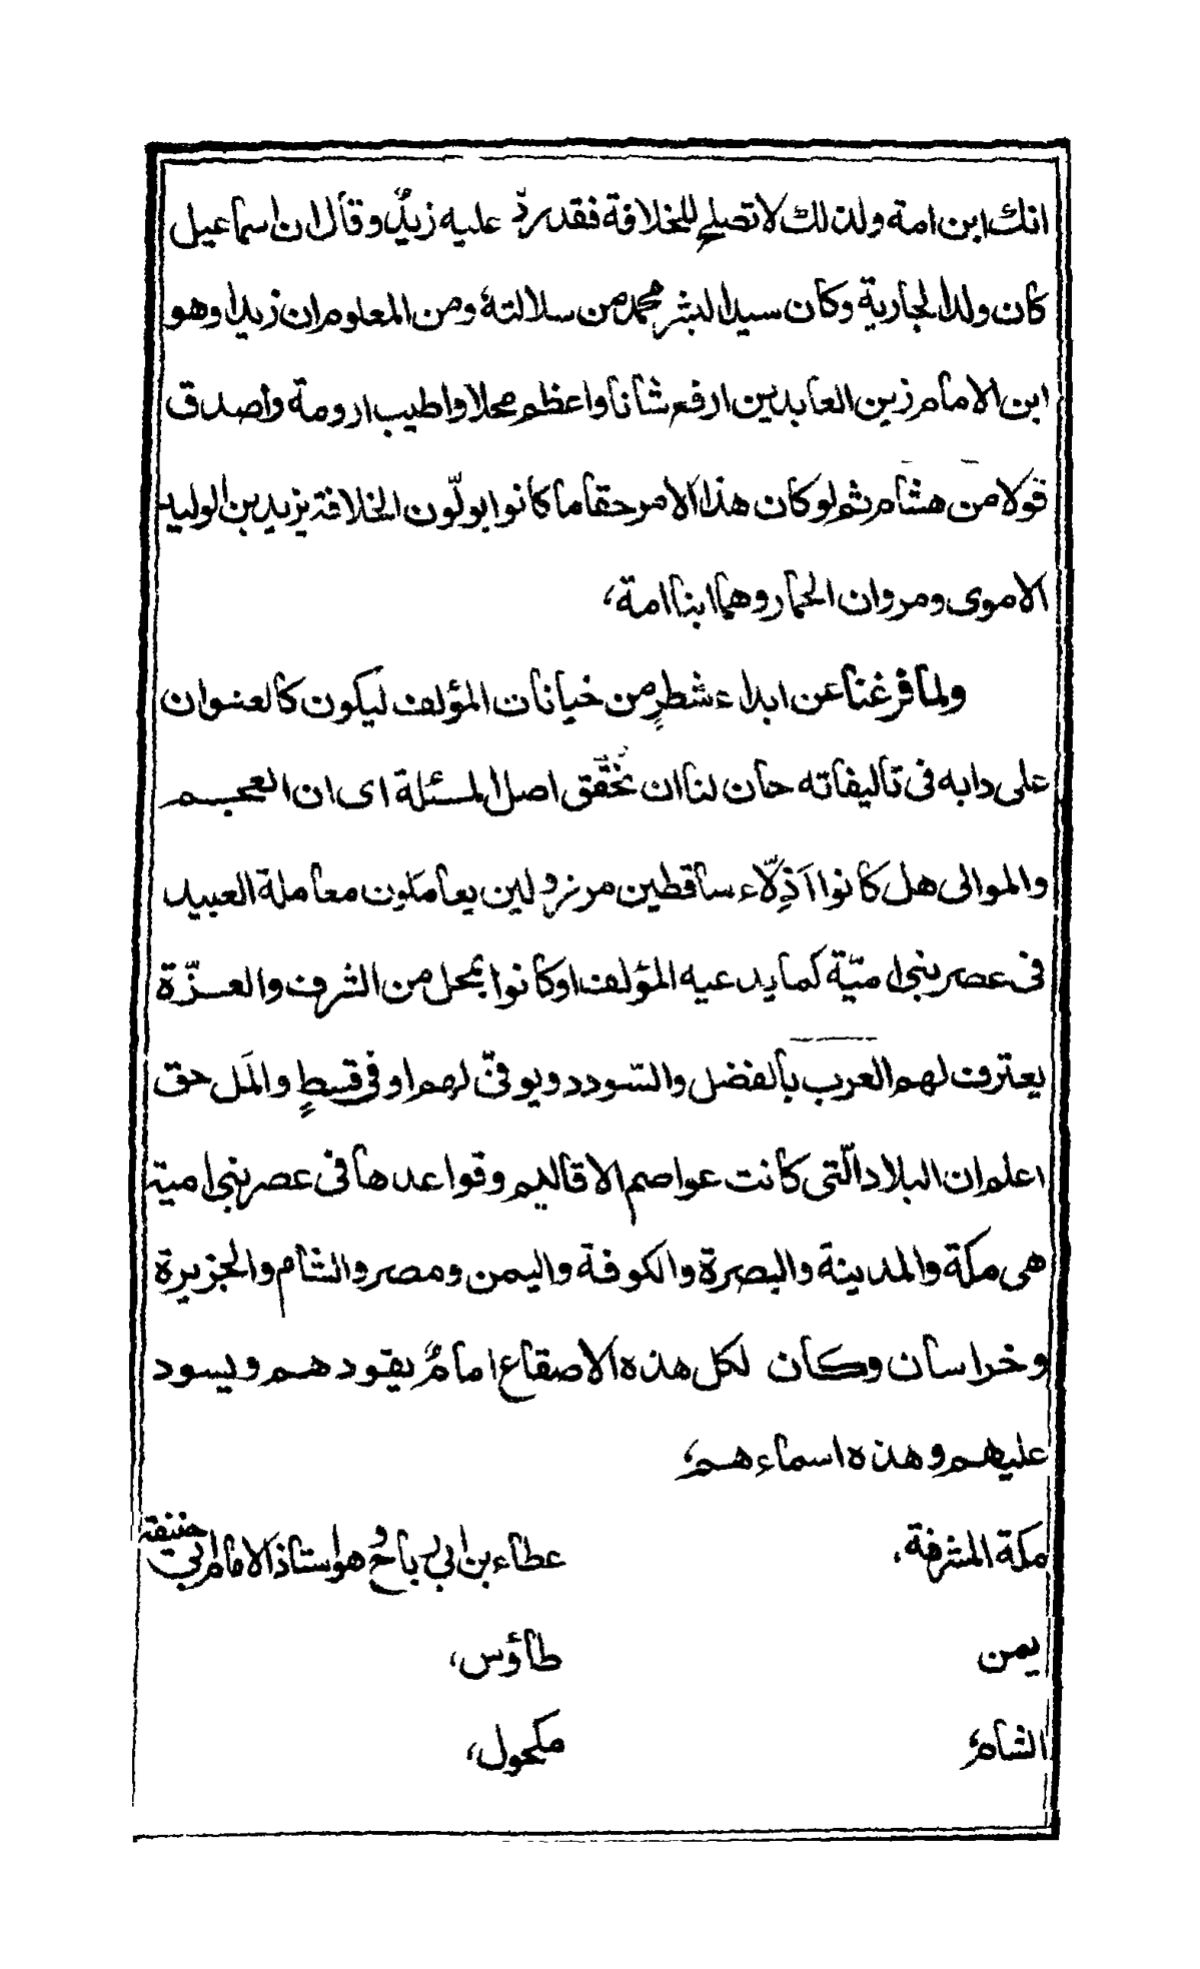 انك ابن امة ولذلك لا تصلح للخلافة فقد ردّ عليه زيدٌ وقال ان اسماعيل
كان ولدا لجارية وكان سيد البشر محمد من سلالته، ومن المعلوم ان زيدا وهو
ابن الامام زين العابدين ارفع شانا واعظم محلا واطيب ارومة واصدق
قولا من هشام ثم لو كان هذا الامر حقا ما كانوا يولّون الخلافة يزيد بن الوليد
الاموى ومروان الحمار وهما ابنا امة،
ولما فرغنا عن ابداء شطرٍ من خيانات المؤلف ليكون كالعنوان
على دابه فى تاليفاته حان لنا ان نُحَقّق اصل المسئلة اى ان العجم
والموالى هل كانوا اَذِلّاء ساقطين مرذولين يعامَلون معاملة العبيد
فى عصر بنى اميّة كما يدعيه المؤلف او كانوا بمحل من الشرف والعزّة
يعترف لهم العرب بالفضل والسّودد ويوفىّ لهم اوفى قسطٍ والمَل حق
اعلم ان البلاد الّتى كانت عواصم الاقاليم وقواعدها فى عصر بنى امية
هى مكة والمدينة والبصرة والكوفة واليمن ومصر والشام والجزيرة
وخراسان وكان لكل هذه الاصقاع امامٌ يقودهم ويسود
عليهم وهذه اسماءهم،
مكة المشرفة، عطاء بن ابى رباح وهو استاذ الامام ابى حنيفة
يمن طاؤس،
الشام، مكحول،